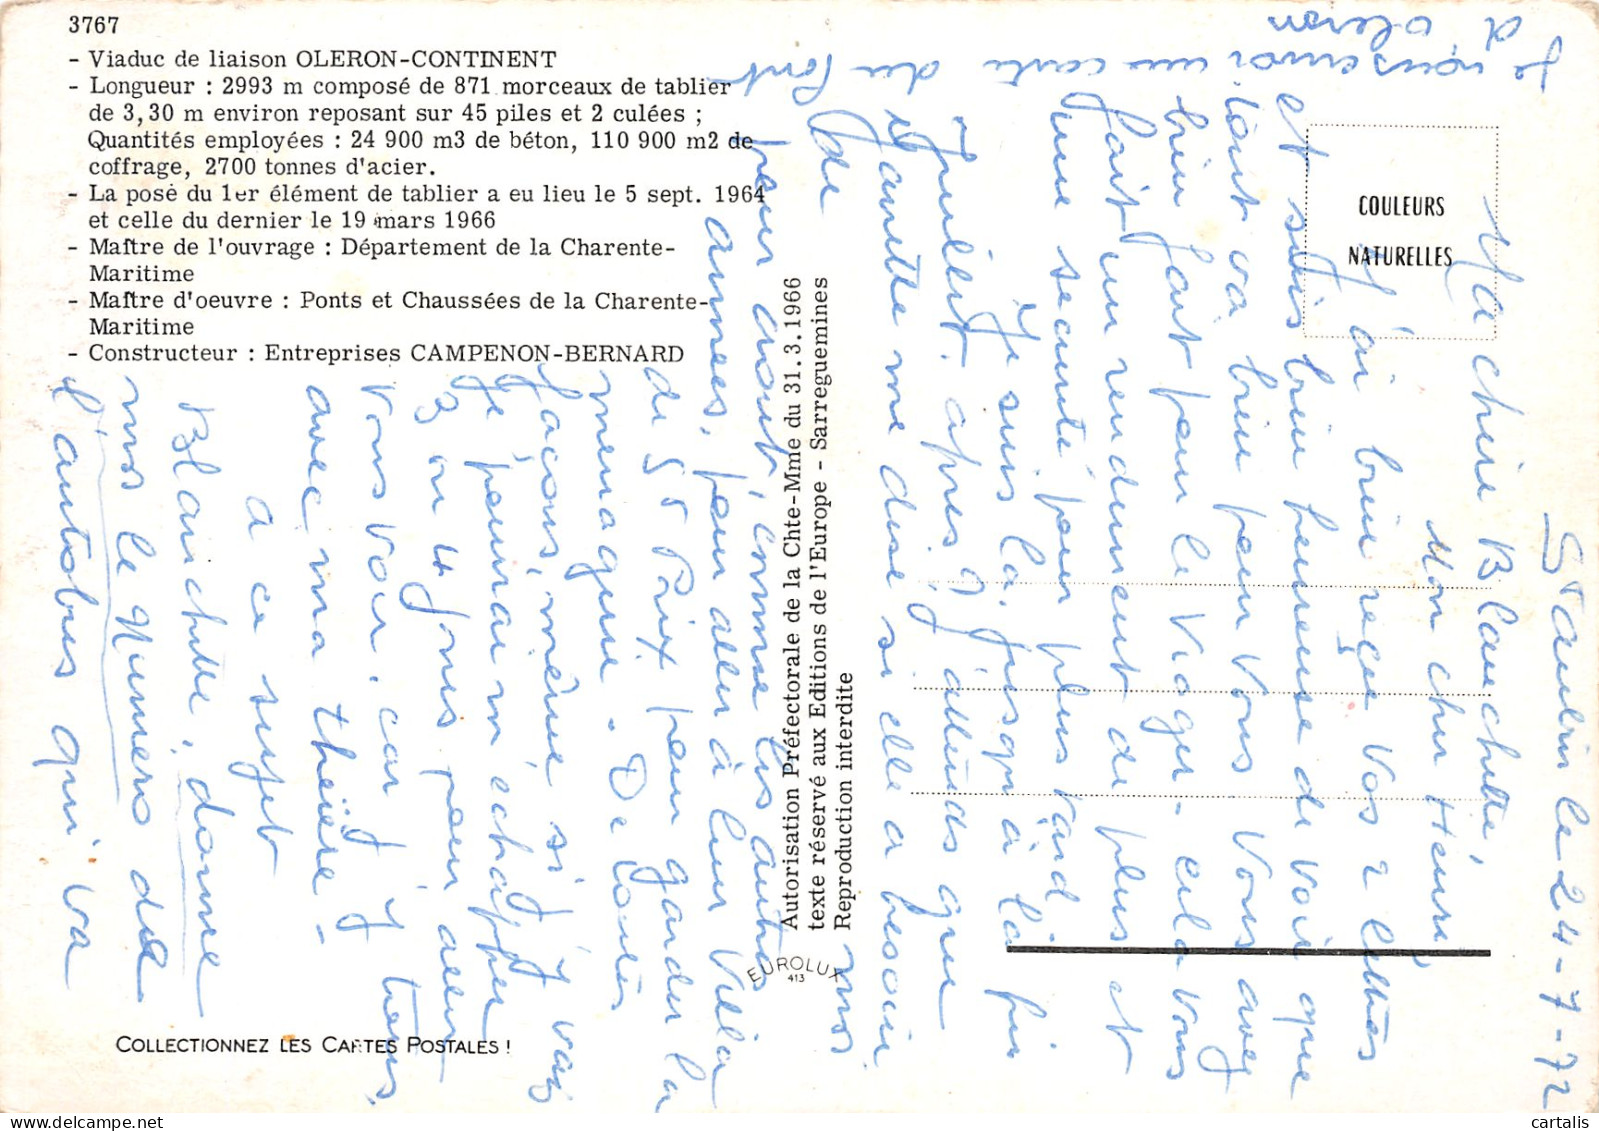 3767
- Viaduc de liaison OLERON-CONTINENT
- Longueur : 2993 m composé de 871 morceaux de tablier
de 3,30 m environ reposant sur 45 piles et 2 culées ;
Quantités employées : 24 900 m3 de béton, 110 900 m2 de
coffrage, 2700 tonnes d'acier.
- La pose du 1er élément de tablier a eu lieu le 5 sept. 1964
et celle du dernier le 19 mars 1966
- Maître de l'ouvrage : Département de la Charente-
Maritime
- Maître d'oeuvre : Ponts et Chaussées de la Charente-
Maritime
- Constructeur : Entreprises CAMPENON-BERNARD
COLLECTIONNEZ LES CARTES POSTALES !
Autorisation Préfectorale de la Chte-Mme du 31.3.1966
texte réservé aux Editions de l'Europe - Sarreguemines
Reproduction interdite
EUROLUX
413
COULEURS
NATURELLES
le 24-7-72
Ma chère Blanchette,
Mon cher Henri
J'ai bien reçu vos 2 lettres
et suis bien heureuse de voir que
tout va bien pour vous. Vous avez
bien fait pour le Viager - cela vous
fait un rendement de plus et
une sécurité pour plus tard.
Je suis là jusqu'à la fin
Juillet. après? J'attends que
Ganette me dise si elle a besoin
de moi
pour août, comme les autres
années, pour aller à leur Villa
de St Prix pour garder la
ménagerie. De toutes
façons, même si j'y vais
je pourrai m'échapper
3 ou 4 jours pour aller
vous voir, car j'y tiens
avec ma théière -
à ce sujet
Blanchette, donne
moi le Numéro de
l'autobus qui va
Je vous envoi une carte du Pont
d'Oleron
cartalis